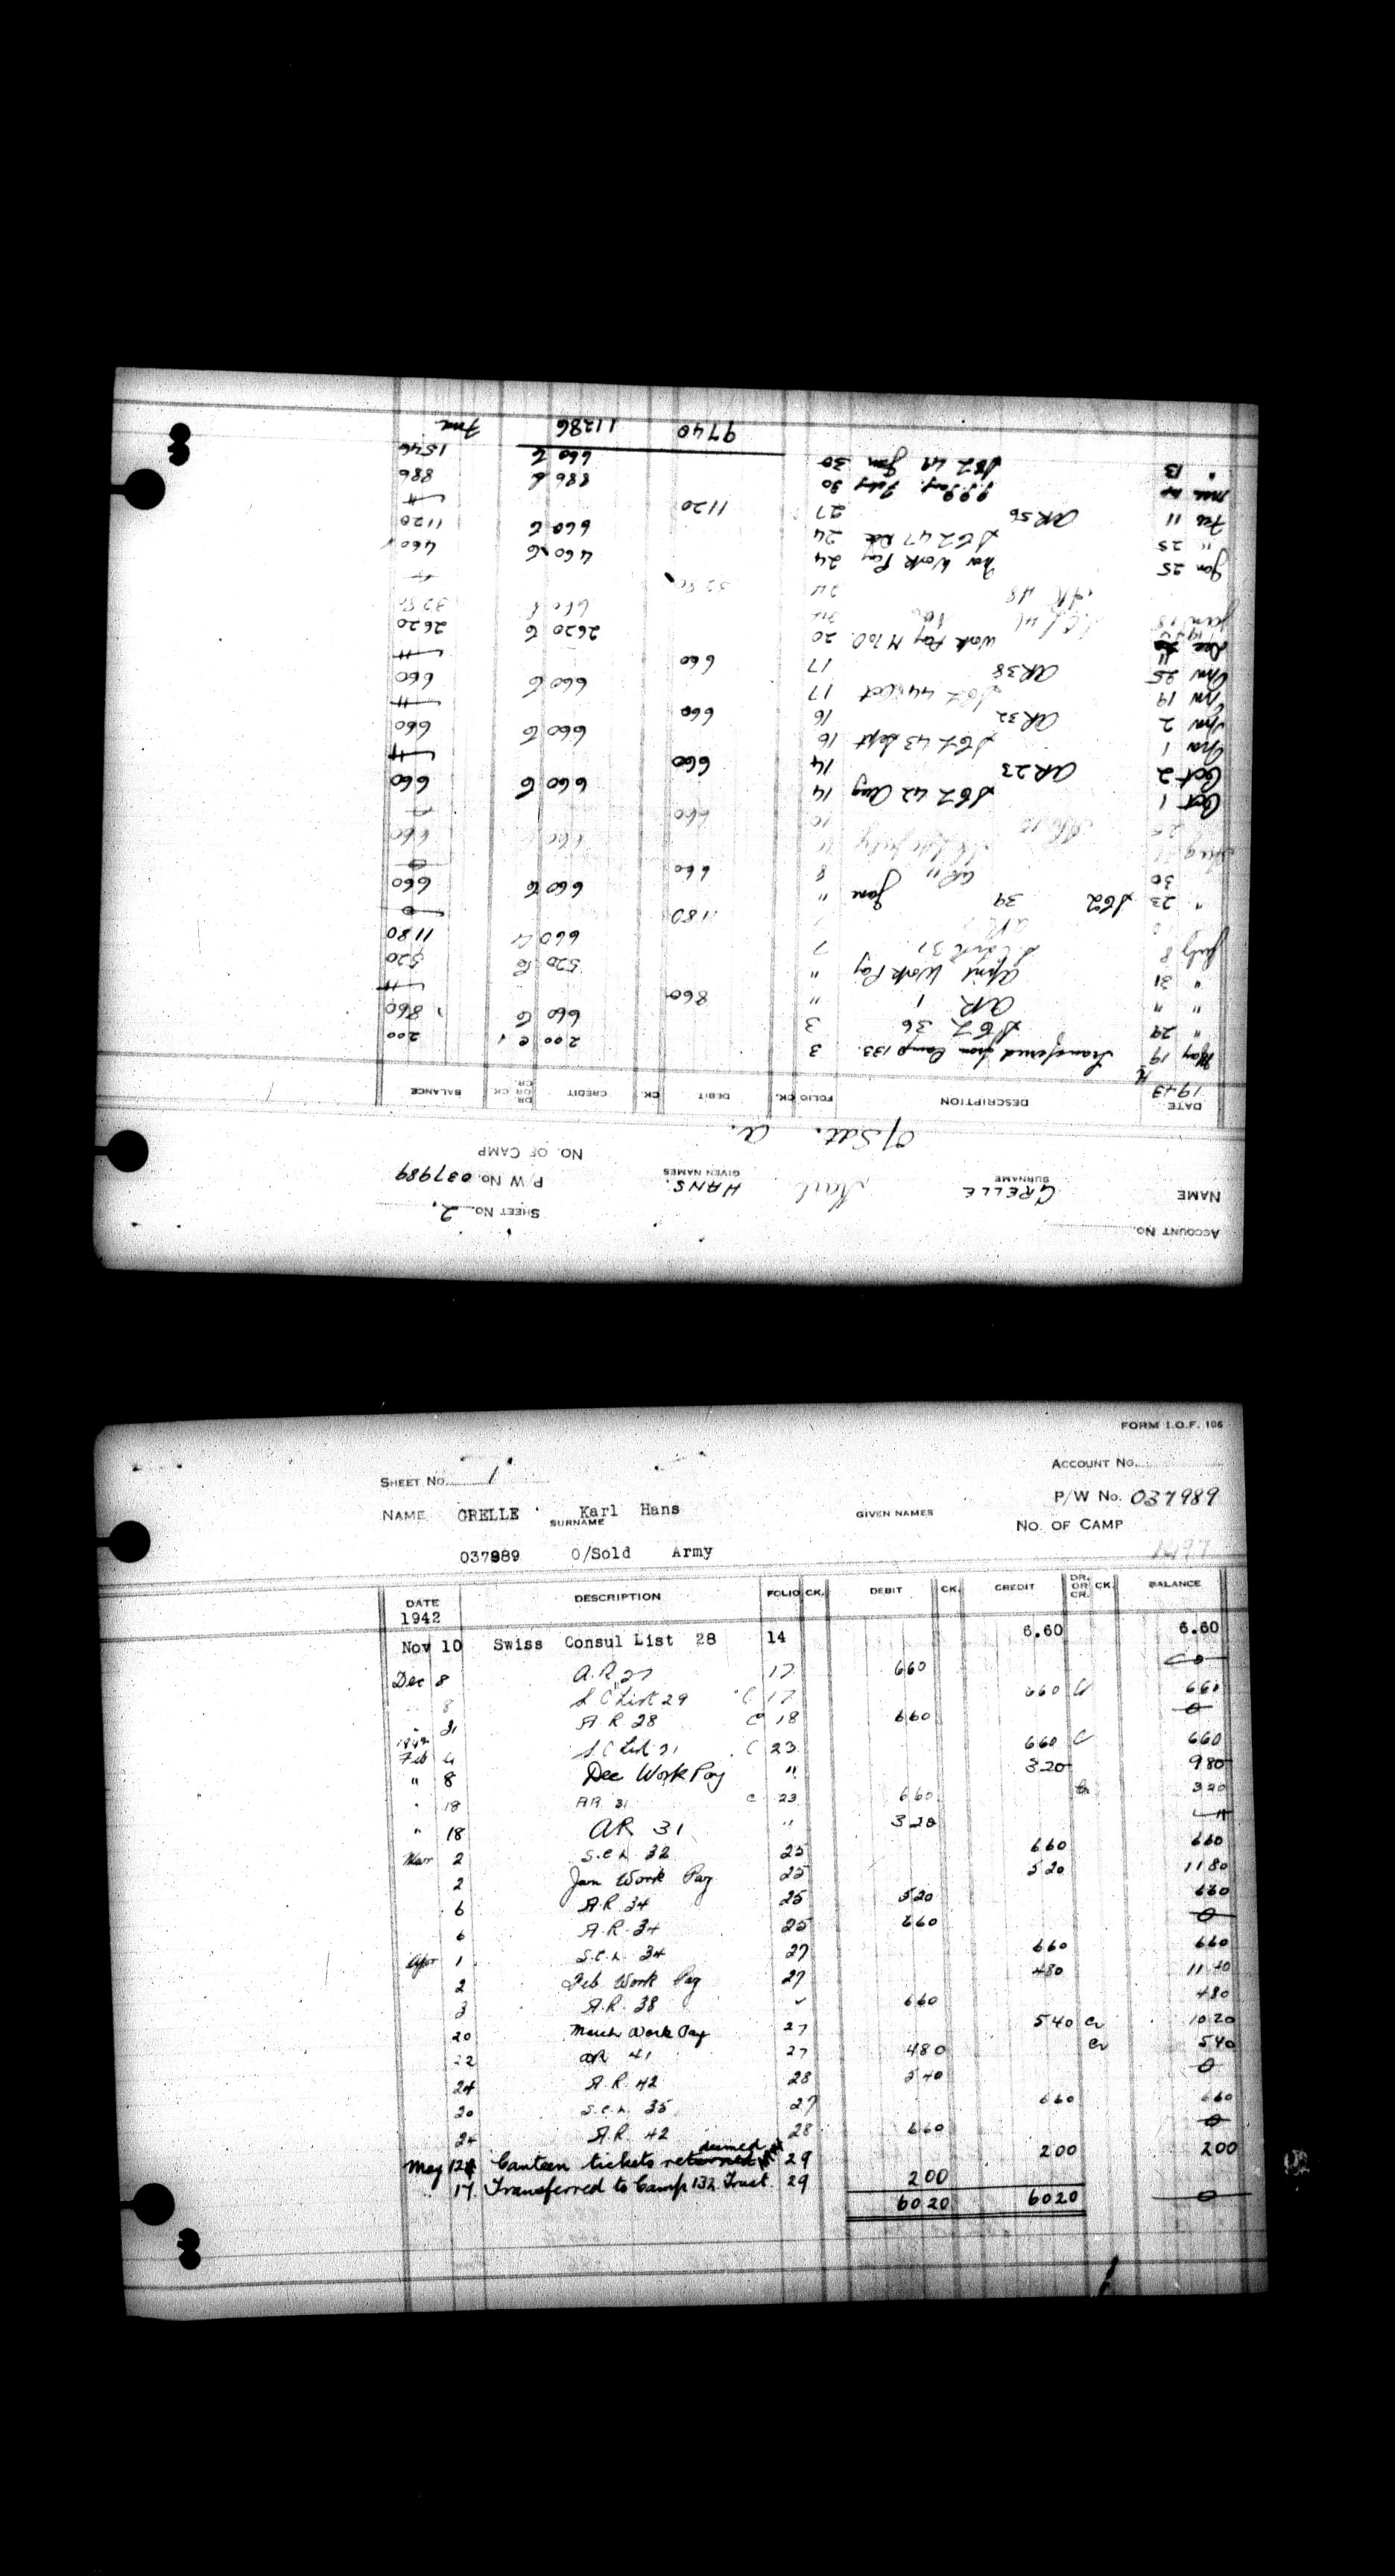 ACCOUNT No.
SHEET No. 2.
NAME GRELLE Karl HANS.
SURNAME GIVEN NAMES
P/W No. 037989
NO. OF CAMP
O/Sdt. A.
DATE DESCRIPTION FOLIO CK. DEBIT CK. CREDIT DR. OR CR. CK. BALANCE
1943
May 19 Transferred from Camp 133. 3 200 200
" 29 36 3 660 860
" " AR 1 " 860
" 31 April Work Pay " 520 520
July 8 7 660 1180
1180
" 23 39 June " 660 660
30 AR 11 8 660
10 660 660
10 660
Oct 1 42 Aug 14 660 660
Oct 2 AR 23 14 660
Nov 1 43 Sept 16 660 660
Nov 2 AR 32 16 660
Nov 19 44 Oct 17 660 660
Nov 25 AR 38 17 660
Dec Work Pay 20 2620 2620
Jan 18 24 660 3280
AR 48 24 3280
Jan 25 Nov Work Pay 24 460 460
" 25 47 Dec 24 660 1120
Feb 11 AR 56 27 1120
Pay. Feby 30 886 886
" 13 Jan 30 660 1546
9740 11286
FORM I.O.F. 106
SHEET No. 1 ACCOUNT No.
NAME GRELLE Karl Hans P/W No. 037989
SURNAME GIVEN NAMES NO. OF CAMP
037989 O/Sold Army
DATE DESCRIPTION FOLIO CK. DEBIT CK. CREDIT DR. OR CR. CK. BALANCE
1942
Nov 10 Swiss Consul List 28 14 6.60 6.60
Dec 8 A.R. 27 17 660 0
8 S C List 29 C 17 660 Cr 660
" 31 A.R. 28 C 18 660 0
Feb 4 S C List 31 C 23 660 C 660
" 8 Dec Work Pay " 320 980
" 18 A.R. 31 C 23 660 320
" 18 AR 31 " 320
Mar 2 S.C.L. 32 25 660 660
2 Jan Work Pay 25 520 1180
6 A.R. 34 25 520 660
6 A.R. 34 25 660 0
Apr 1 S.C.L. 34 27 660 660
2 Feb Work Pay 27 480 1140
3 A.R. 38 660 480
20 March Work Pay 27 540 Cr 1020
22 AR 41 27 480 Cr 540
24 A.R. 42 28 540 0
20 S.C.L. 35 27 660 660
24 A.R. 42 28 660 0
May 12 Canteen tickets redeemed 29 200 200
17 Transferred to Camp 132 Trust. 29 200
6020 6020 0